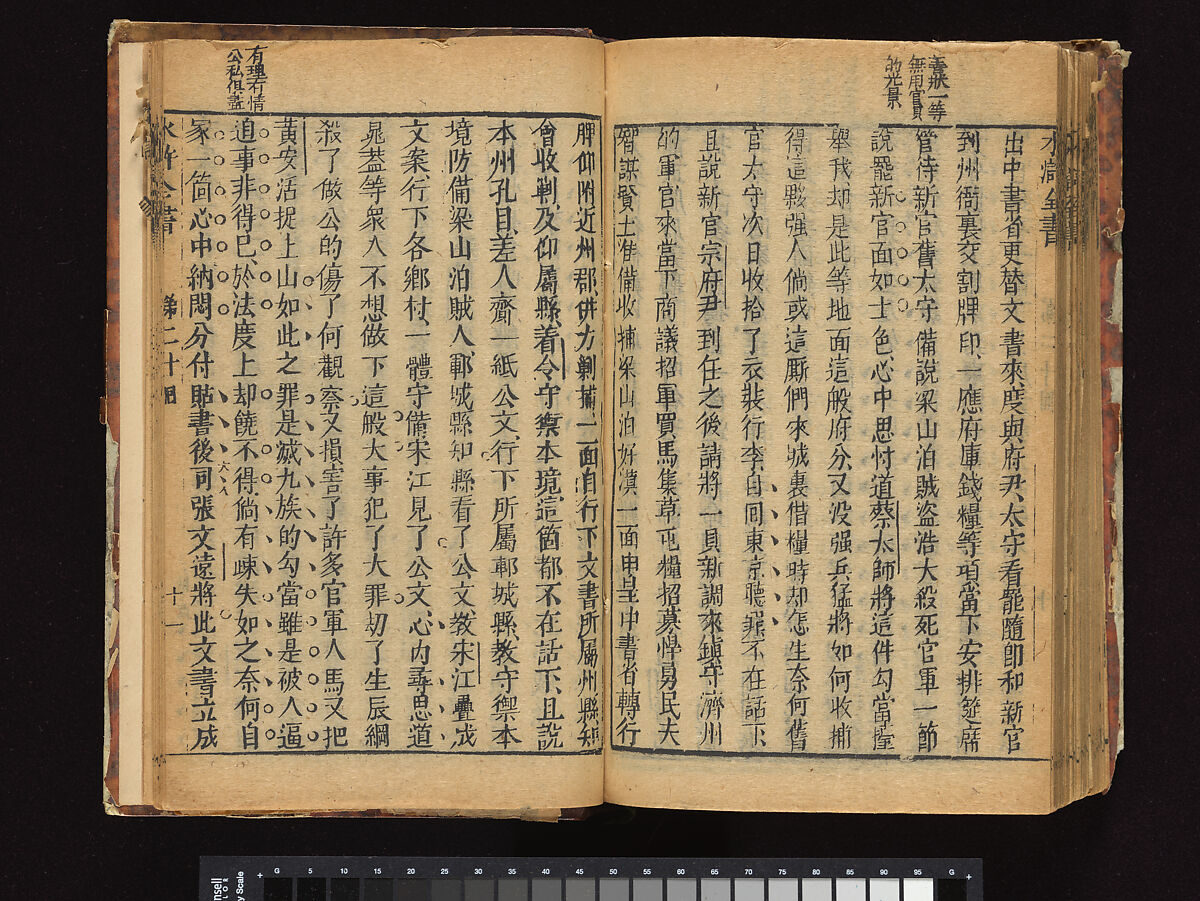 一等
無用官員
的光景
水滸全書
出中書省更替文書來度與府尹太守看罷隨即和新官
到州衙裏交割牌印一應府庫錢糧等項當下安排筵席
管待新官舊太守備說梁山泊賊盜浩大殺死官軍一節
說罷新官面如土色心中思忖道蔡太師將這件勾當擡
舉我却是此等地面這般府分又没强兵猛將如何收捕
得這夥强人倘或這厮們來城裏借糧時却怎生奈何舊
官太守次日收拾了衣裝行李自回東京聽罪不在話下
且說新官宗府尹到任之後請將一員新調來鎮守濟州
的軍官來當下商議招軍買馬集草屯糧招募悍勇民夫
智謀賢士准備收捕梁山泊好漢一面申呈中書省轉行
牌仰附近州郡併力剿捕一面自行下文書所屬州縣知
會收剿及仰屬縣着令守禦本境這箇都不在話下且說
本州孔目差人齎一紙公文行下所屬鄆城縣教守禦本
境防備梁山泊賊人鄆城縣知縣看了公文教宋江疊成
文案行下各鄉村一體守備宋江見了公文心內尋思道
晁葢等衆人不想做下這般大事犯了大罪刧了生辰綱
殺了做公的傷了何觀察又損害了許多官軍人馬又把
黃安活捉上山如此之罪是滅九族的勾當雖是被人逼
迫事非得已於法度上却饒不得倘有疎失如之奈何自
家一箇心中納悶分付貼書後司張文遠將此文書立成
有理有情
公私俱盡
六十八
水滸全書
第二十囘
十一